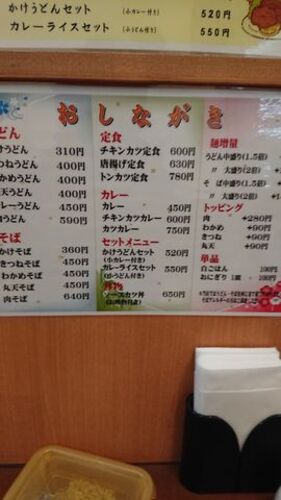 かけうどんセット (小カレー付き) 520円
カレーライスセット (小うどん付き) 550円
おしながき
どん
けうどん 310円
つねうどん 400円
かめうどん 400円
天うどん 400円
レーうどん 450円
うどん 590円
そば
かけそば 360円
きつねそば 450円
わかめそば 450円
丸天そば 450円
肉そば 640円
定食
チキンカツ定食 600円
唐揚げ定食 630円
トンカツ定食 780円
カレー
カレー 450円
チキンカツカレー 600円
カツカレー 750円
セットメニュー
かけうどんセット 520円
(小カレー付き)
カレーライスセット 550円
(小うどん付き)
丼物
ソースカツ丼 650円
麺増量
うどん中盛り(1.5倍)
〃 大盛り(2倍) +1
そば中盛り(1.5倍)
〃 大盛り(2倍) +
トッピング
肉 +280円
わかめ +90円
きつね +90円
丸天 +90円
単品
白ごはん 100円
おにぎり 1個 100円